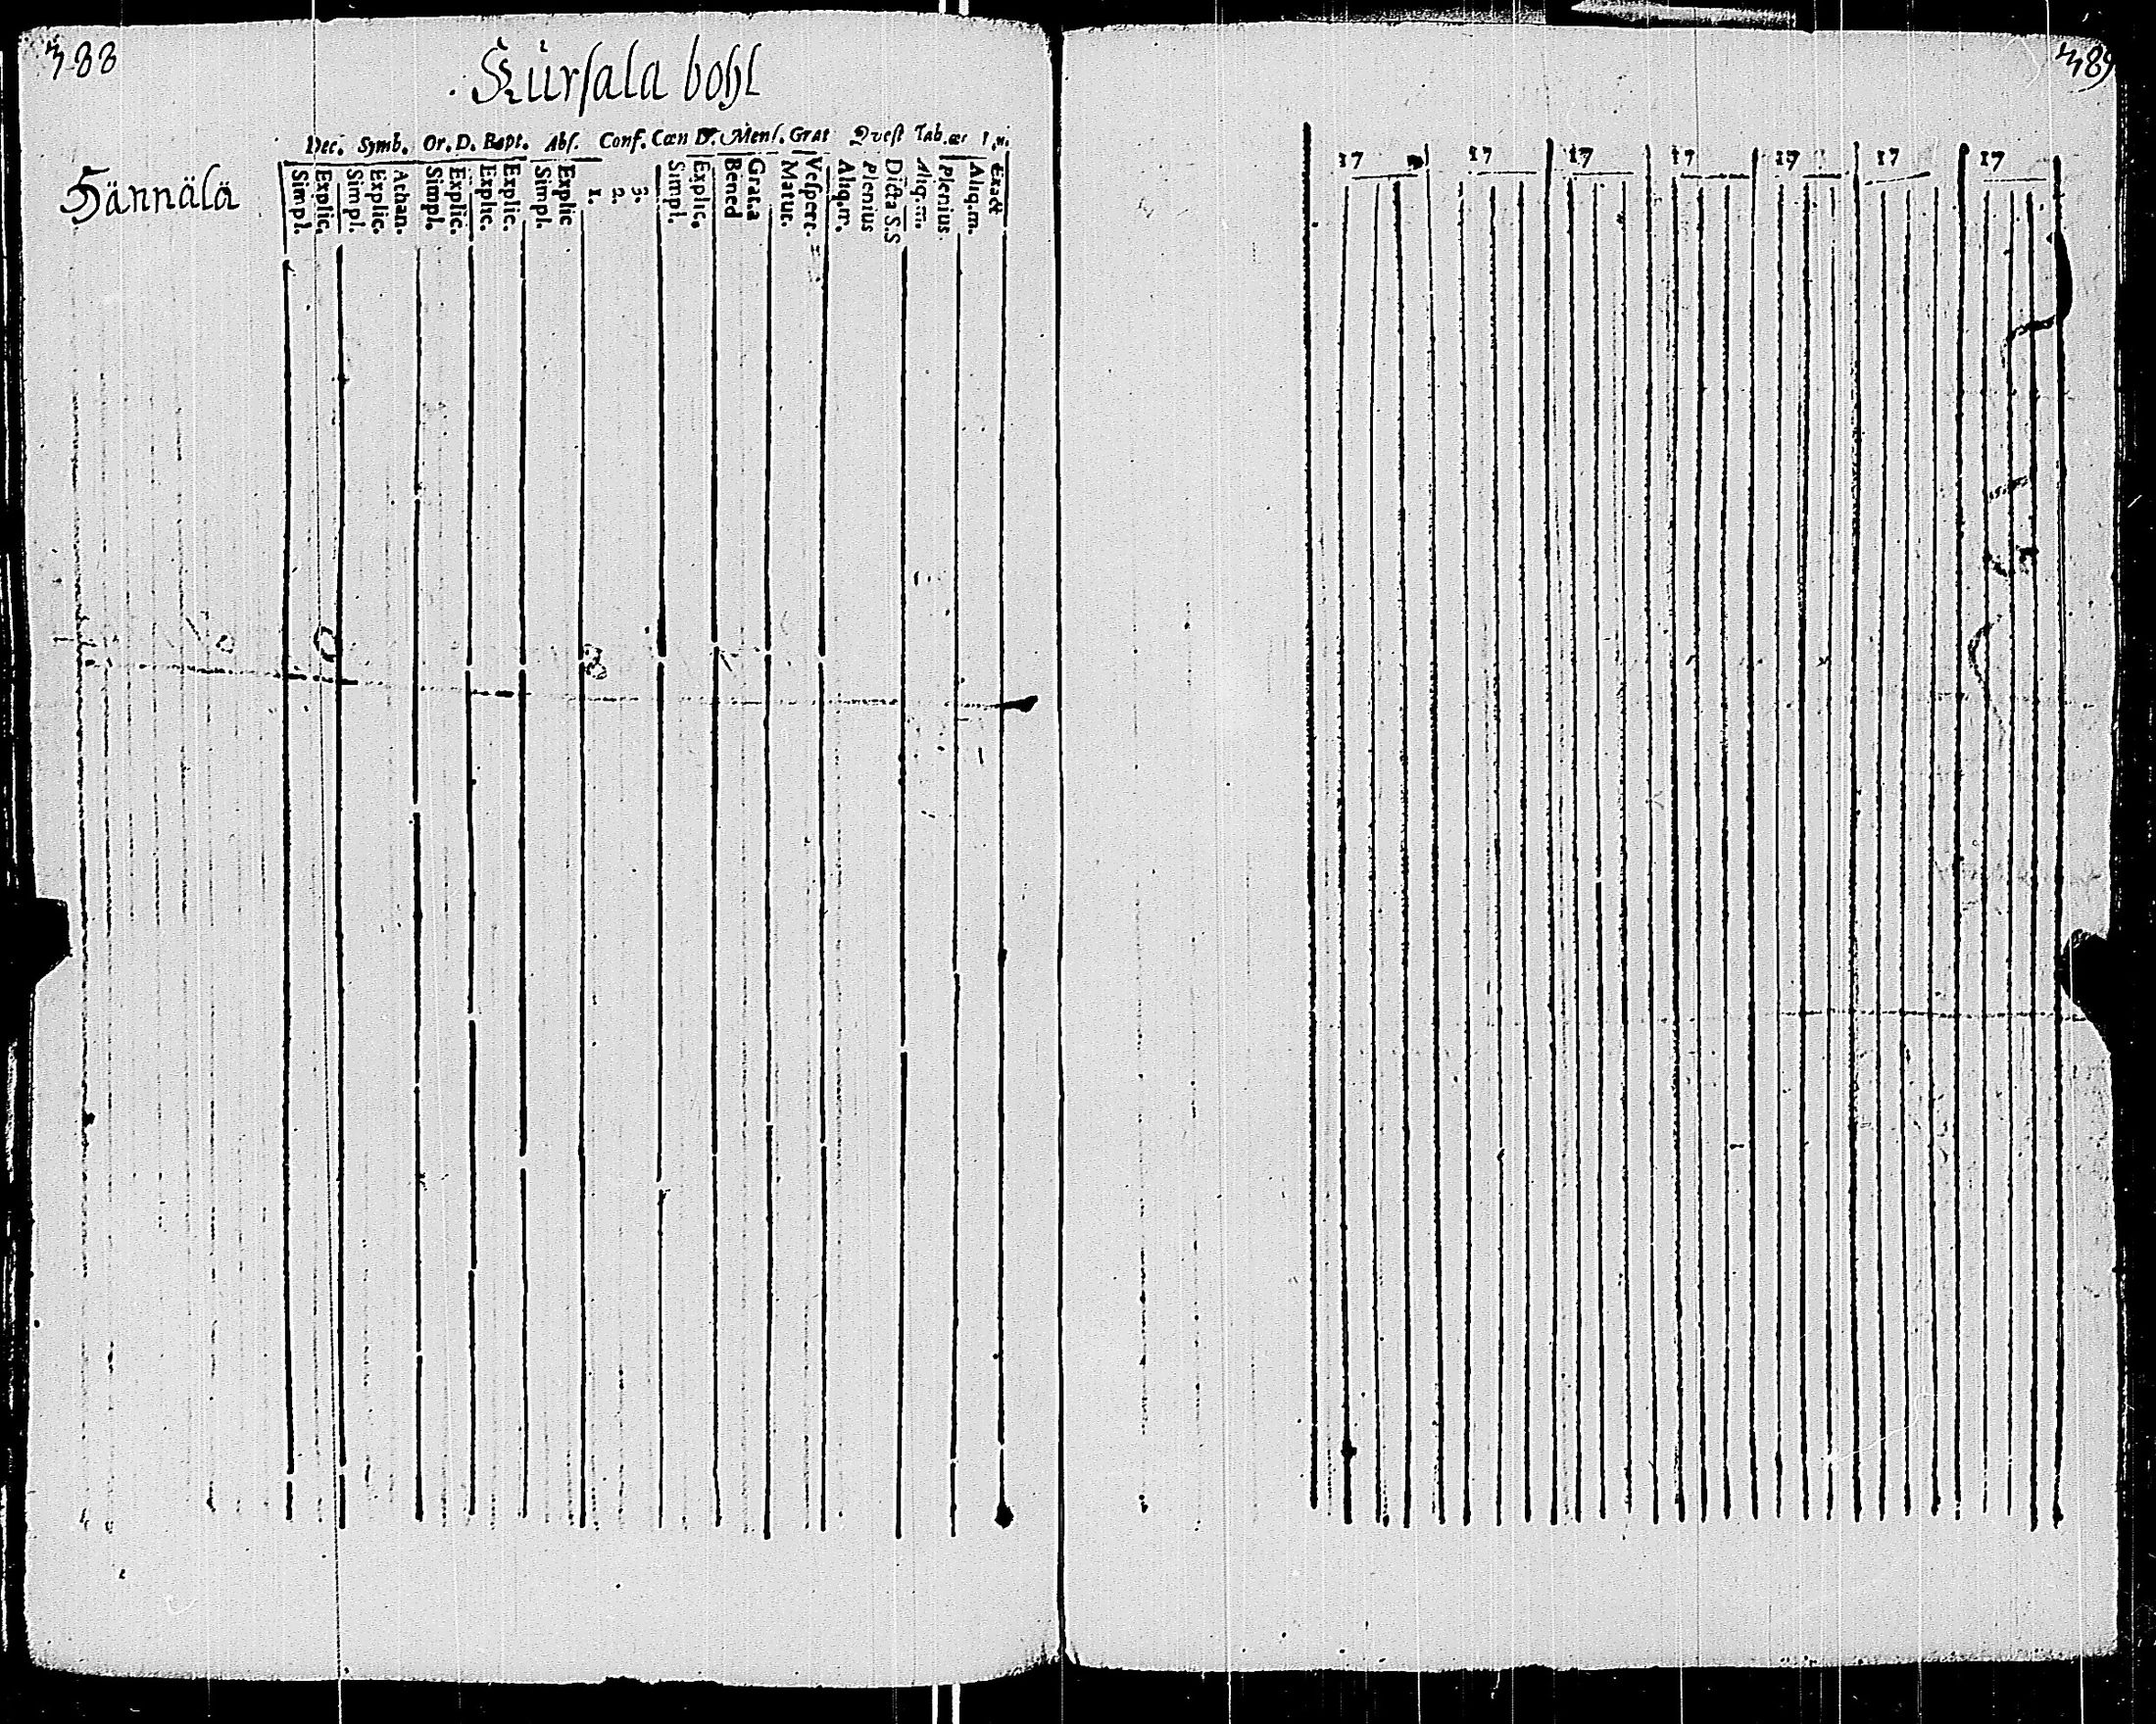 388
Kürsala bohl
Dec. Symb. Or. D. Bapt. Abs. Conf. Cœn D. Mens. Grat Qvest Tab. œc
Hännälä
Simpl.
Explic.
Simpl.
Explic.
Athan.
Simpl.
Explic.
Explic.
Explic.
Simpl.
Explic
1.
2.
3.
Simpl.
Explic.
Bened
Grat.a
Matut.
Vesper.
Aliq.m.
Plenius
Dicta S.S
Aliq.m.
Plenius.
Aliq.m.
Exact
389
17 17 17 17 17 17 17